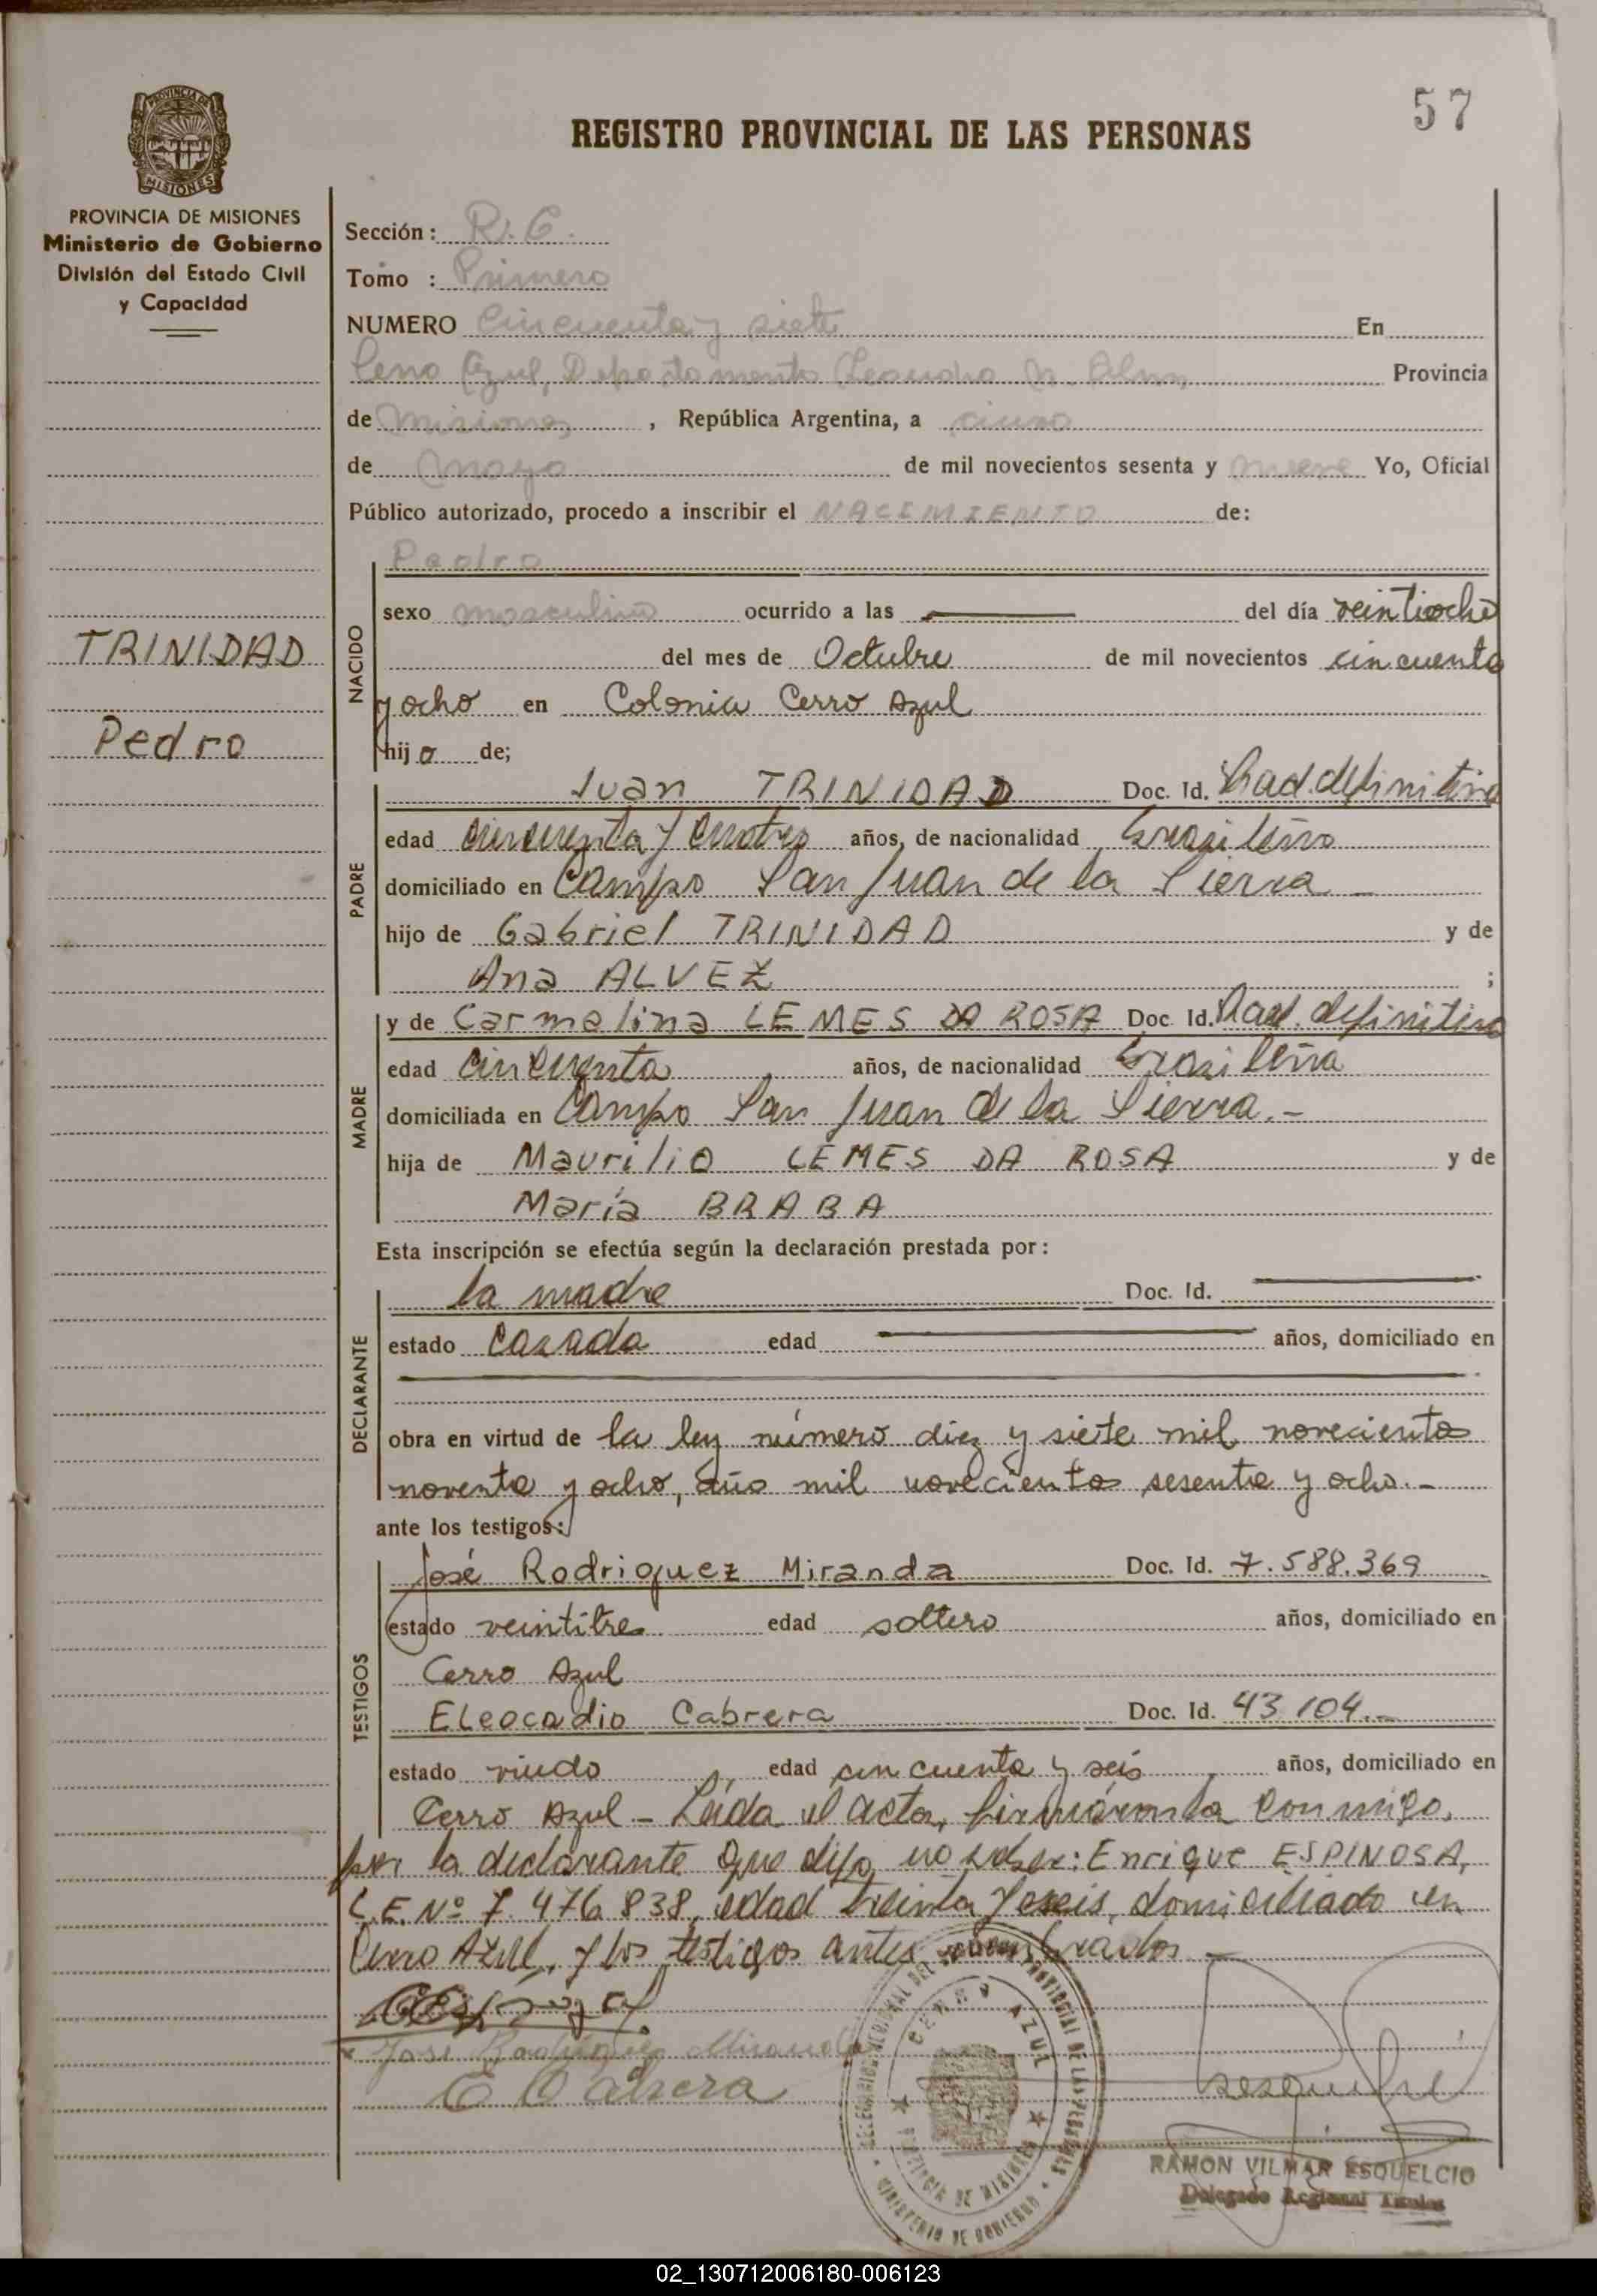 57
REGISTRO PROVINCIAL DE LAS PERSONAS
PROVINCIA DE
MISIONES
PROVINCIA DE MISIONES
Ministerio de Gobierno
División del Estado Civil
y Capacidad
TRINIDAD
Pedro
Sección: R. C.
Tomo : Primero
NUMERO Cincuenta y siete En
Cerro Azul, Departamento Leandro N. Alem, Provincia
de Misiones, República Argentina, a cinco
de Mayo de mil novecientos sesenta y nueve Yo, Oficial
Público autorizado, procedo a inscribir el NACIMIENTO de:
Pedro
NACIDO
sexo masculino ocurrido a las del día veintiocho
del mes de Octubre de mil novecientos cincuenta
y ocho en Colonia Cerro Azul
hijo de;
PADRE
Juan TRINIDAD Doc. Id. Rad. definitiva
edad cincuenta y cuatro años, de nacionalidad brasileño
domiciliado en Campo San Juan de la Sierra -
hijo de Gabriel TRINIDAD y de
Ana ALVEZ ;
MADRE
y de Carmelina LEMES DA ROSA Doc. Id. Rad. definitiva
edad cincuenta años, de nacionalidad brasileña
domiciliada en Campo San Juan de la Sierra. -
hija de Maurilio LEMES DA ROSA y de
María BRABA
Esta inscripción se efectúa según la declaración prestada por:
DECLARANTE
la madre Doc. Id.
estado casada edad años, domiciliado en
obra en virtud de la ley número diez y siete mil novecientos
noventa y ocho, año mil novecientos sesenta y ocho. -
ante los testigos:
TESTIGOS
José Rodriguez Miranda Doc. Id. 7.588.369
estado veintitres edad soltero años, domiciliado en
Cerro Azul
Eleocadio Cabrera Doc. Id. 43 104. -
estado viudo, edad cincuenta y seis años, domiciliado en
Cerro Azul - Leída el acta, firmáronla conmigo,
por la declarante que dijo no saber: Enrique ESPINOSA,
C.E. Nº 7.476.838, edad treinta y seis, domiciliado en
Cerro Azul, y los testigos antes nombrados -
José Rodriguez Miranda
E Cabrera
CERRO AZUL
PROVINCIA DE MISIONES
MINISTERIO DE GOBIERNO
RAMON VILMAR ESQUELCIO
Delegado Regional Titular
02_130712006180-006123